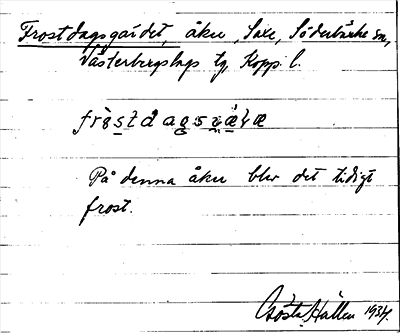 Frostdagsgärdet, åker, Saxe, Söderbärke sn,
Västerbergslags tg, Kopp. l.
På denna åker blev det tidigt
frost.
Gösta Hallen 1934.